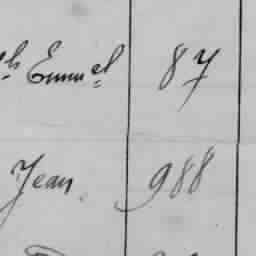 Emm.el 87
Jean 988